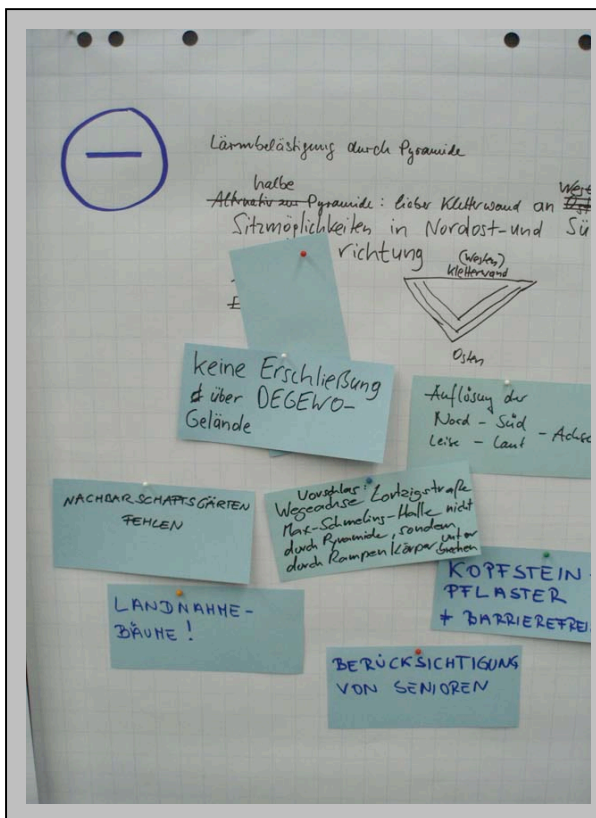 Lärmbelästigung durch Pyramide
halbe
Alternativ zur Pyramide: lieber Kletterwand an West
Sitzmöglichkeiten in Nordost- und Sü
richtung
(Westen)
Kletterwand
Osten
keine Erschließung
über DEGEWO-
Gelände
Auflösung der
Nord - Süd
Leise - Laut - Achse
NACHBARSCHAFTSGÄRTEN
FEHLEN
Vorschlag:
Wegeachse Lortzigstraße
Max-Schmeling-Halle nicht
durch Pyramide, sondern
durch Rampenkörper unter
brechen
KOPFSTEIN-
PFLASTER
≠ BARRIEREFREI
LANDNAHME-
BÄUME!
BERÜCKSICHTIGUNG
VON SENIOREN